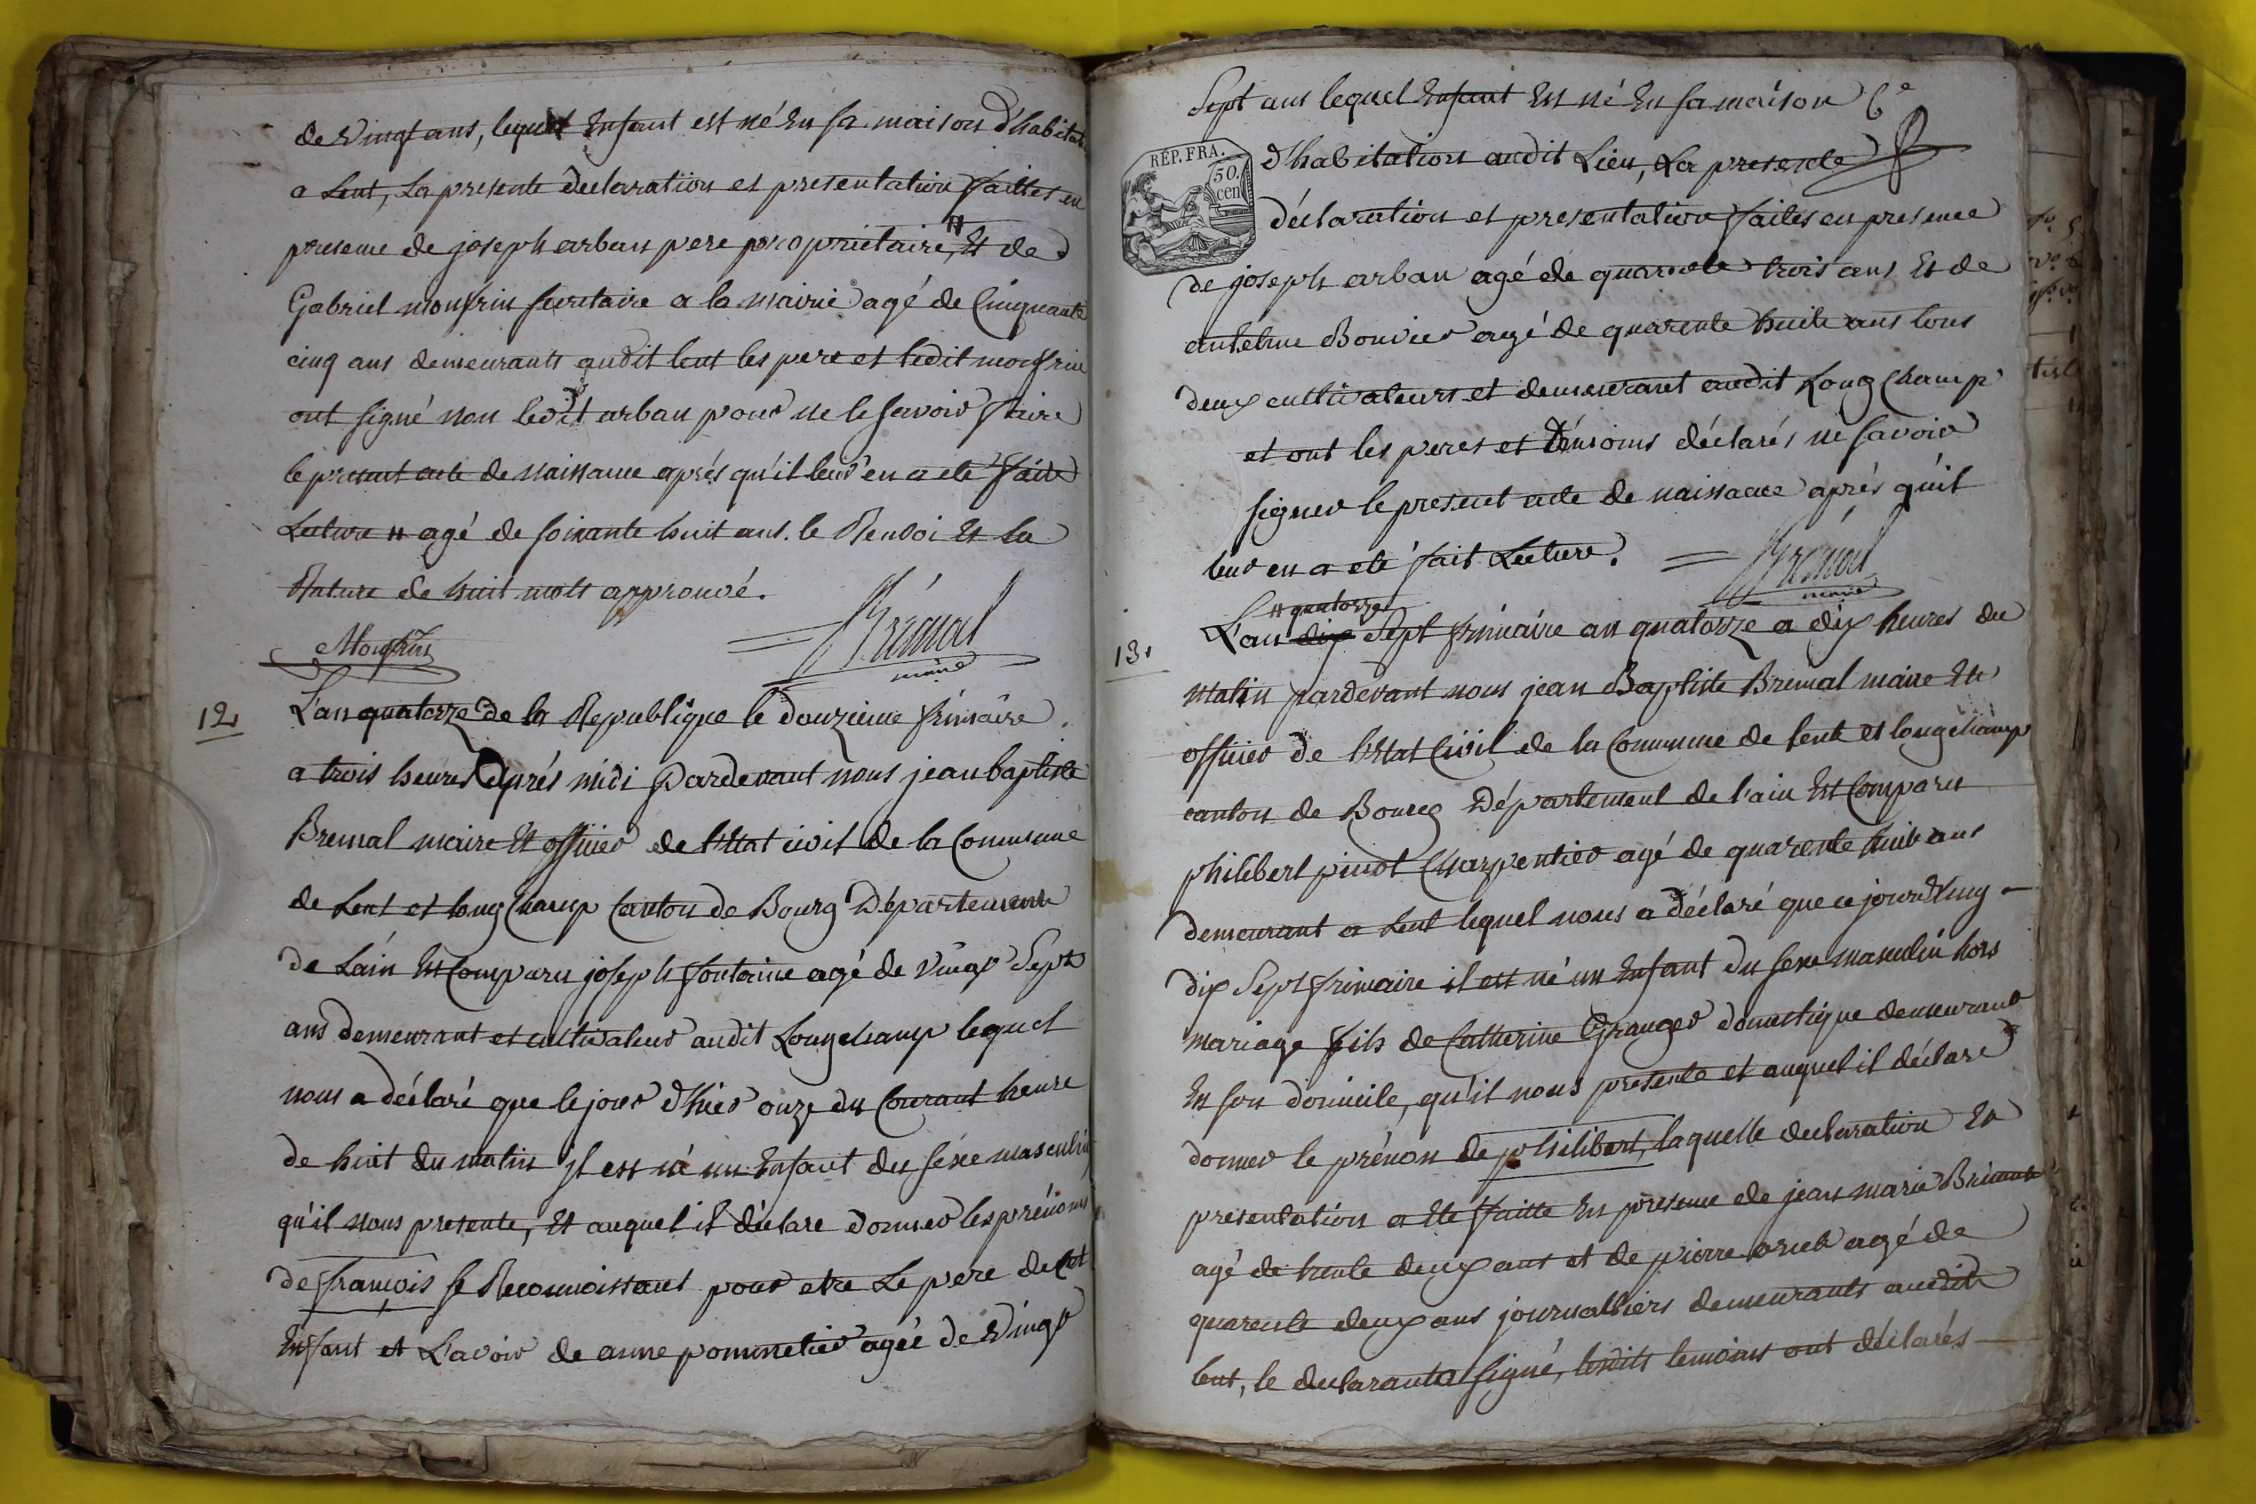 de vingt ans, lequel Enfant est né En sa maison d'habitat
a Lent, La presente declaration et presentation faittes en
presence de joseph arban pere proprietaire, # Et de
Gabriel monfrin secretaire a la mairie agé de Cinquante
cinq ans demeurants audit lent les pere et ledit monfrin
ont signé non ledit arban pour ne le savoir faire
le present acte de naissance aprés qu'il leur en a ete fait
Lecture # agé de soixante huit ans. le Renvoi Et la
Rature de huit mots approuvé.
Monfrin Brémal
maire
12. L'an quatorze de la Republique le douzieme frimaire
a trois heures aprés midi Pardevant nous jean baptiste
Bremal maire Et officier de l'Etat civil de la Commune
de Lent et long Champ Canton de Bourg Département
de Lain Est Comparu joseph fontaine agé de vingt Sept
ans demeurant et cultivateur audit Longchamp lequel
nous a déclaré que le jour d'hier onze du Courant heure
de huit du matin il est né un Enfant du séxe masculin
qu'il nous presente, Et auquel il déclare donner les prénoms
de françois se Reconnoissant pour etre Le pere de Cet
Enfant et L'avoir de anne pommetier agée de vingt
Sept ans lequel Enfant Est né En sa maison
RÉP. FRA.
50.
cen
d'habitation audit Lieu, La presente
déclaration et presentation faites en presence
de joseph arban agé de quarante trois ans Et de
antelme Bouvier agé de quarente huit ans tous
deux cultivateurs et demeurant audit Long Champ
et ont les peres et témoins déclarés ne savoir
signer le present acte de naissance aprés qu'il
leur en a eté fait Lecture. Brémal
maire
# quatorze
13. L'an dix Sept frimaire an quatorze a dix heures du
matin pardevant nous jean Baptiste Bremal maire Et
officier de l'Etat Civil de la Commune de lent et longchamp
canton de Bourg Département de l'ain Est Comparu
philibert pinot Charpentier agé de quarente huit ans
demeurant a Lent lequel nous a déclaré que ce jourd'huy
dix Sept frimaire il est né un Enfant du sexe masculin hors
mariage fils de Catherine Granger domestique demeurant
En son domicile, qu'il nous presente et auquel il déclare
donner le prénom de philibert, laquelle declaration Et
presentation a Ete faitte En presence de jean marie
agé de trente deux ans et de pierre agé de
quarente deux ans journalliers demeurants audit
lent, le declarant a signé, lesdits temoins ont déclarés